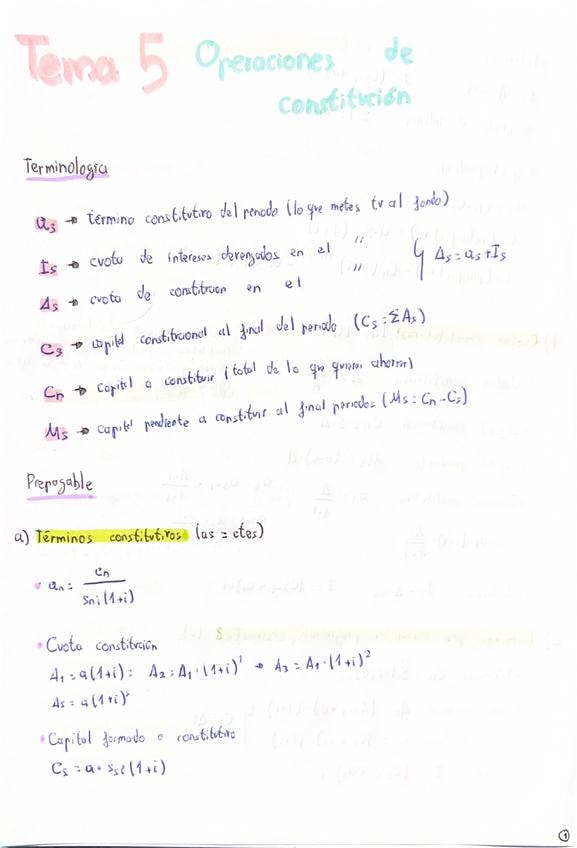 Tema 5 Operaciones de
constitución
Terminología
as → término constitutivo del periodo (lo que metes tu al fondo)
Is → cuota de intereses devengados en el "
Δs → cuota de constitución en el " } Δs = as + Is
Cs → capital constitucional al final del periodo (Cs = ΣAs)
Cn → Capital a constituir (total de lo que quieres ahorrar)
Ms → capital pendiente a constituir al final periodos (Ms = Cn - Cs)
Prepagable
a) Términos constitutivos (as = ctes)
• an = Cn / Sni(1+i)
• Cuota constitución
A1 = a(1+i) : A2 = A1 · (1+i)¹ → A3 = A1 · (1+i)²
As = a(1+i)ˢ
• Capital formado o constitutivo
Cs = a · Ssi(1+i)
1